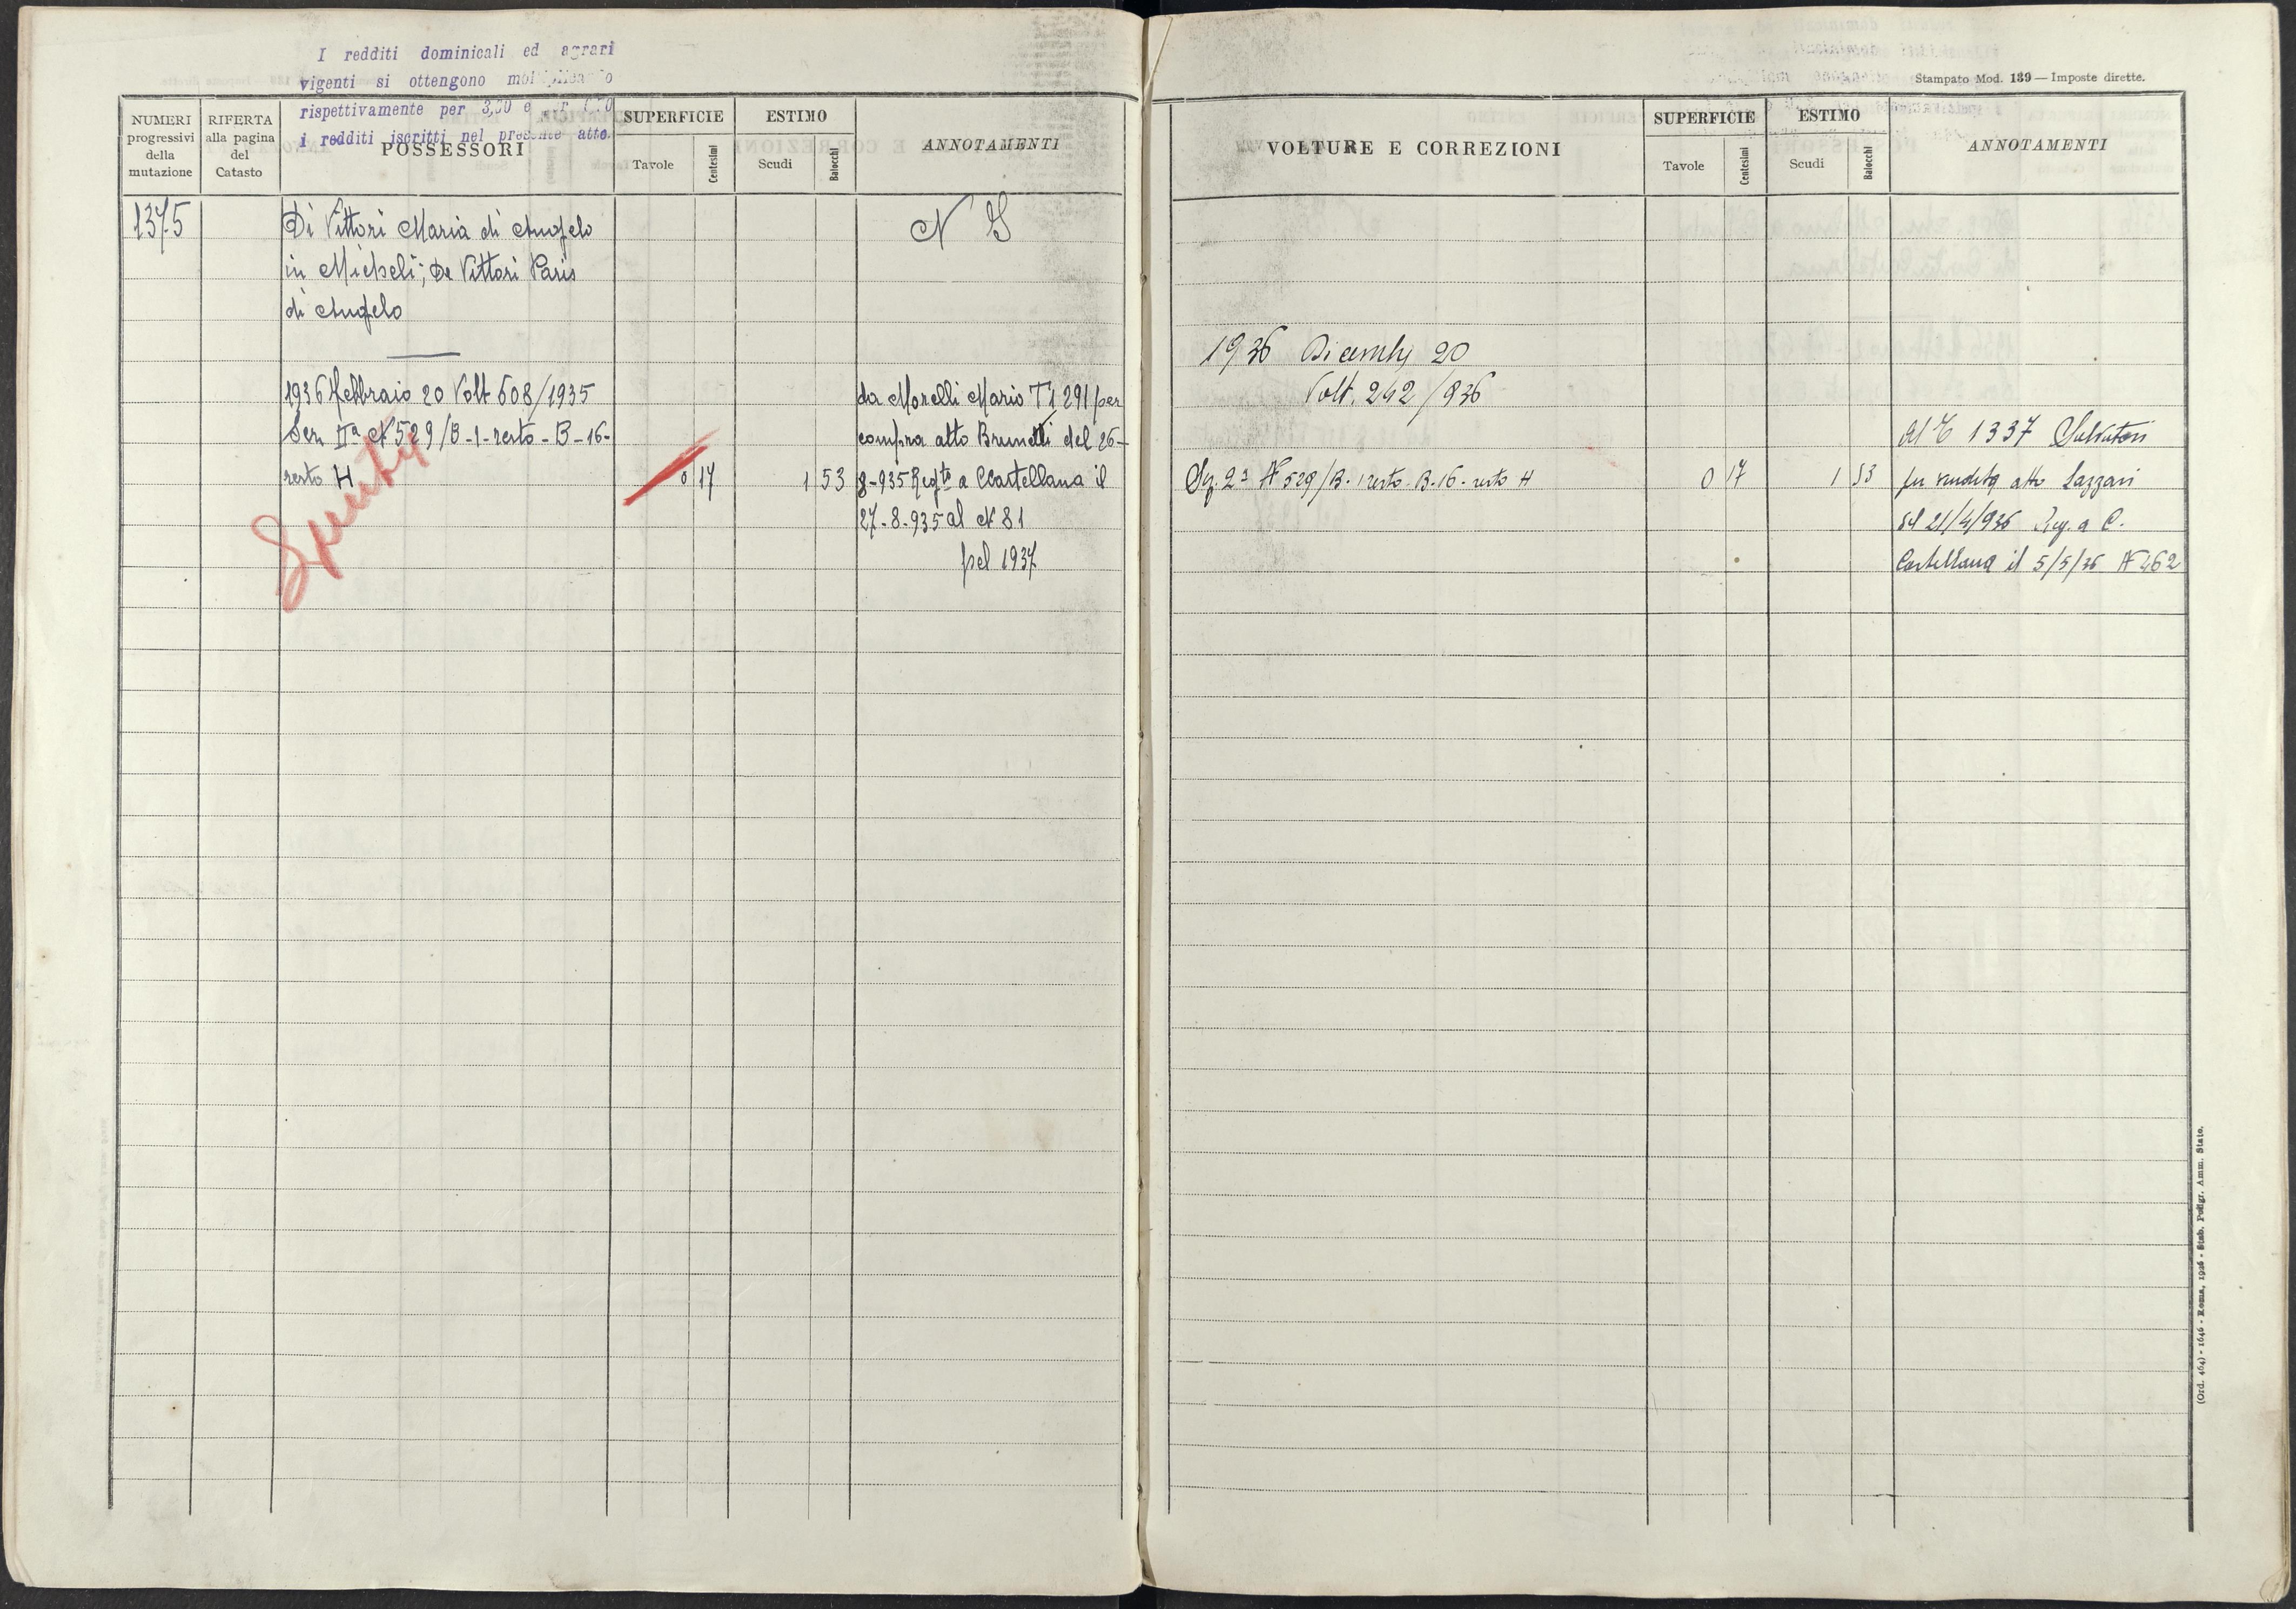 I redditi dominicali ed agrari
vigenti si ottengono
rispettivamente per 3,
i redditi iscritti nel presente atto.
NUMERI progressivi della mutazione
RIFERTA alla pagina del Catasto
POSSESSORI
SUPERFICIE
Tavole
Centesimi
ESTIMO
Scudi
Baiocchi
ANNOTAMENTI
1375
Di Vittori Maria di Angelo
in Micheli; De Vittori Paris
di Angelo
N G
1936 Febbraio 20 Volt 608/1935
Sez IIª N 529/B-1-resto-B-16-
resto H
0 17
1 53
da Morelli Mario T1 291 per
compra atto Brunelli del 26-
8-935 Regto a CCastellana il
27-8-935 al N 81
pel 1937
Spenta
Stampato Mod. 139 — Imposte dirette.
VOLTURE E CORREZIONI
SUPERFICIE
Tavole
Centesimi
ESTIMO
Scudi
Baiocchi
ANNOTAMENTI
1936 Dicembre 20
Volt. 242/936
Sez. 2ª N 529/B. 1 resto. B.16. resto H
0 17
1 53
Al 1337 Salvatori
per vendita atto Lazzari
del 21/4/936 Reg. a C.
Castellana il 5/5/36 N 462
(Ord. 464) - 1646 - Roma, 1926 - Stab. Poligr. Amm. Stato.